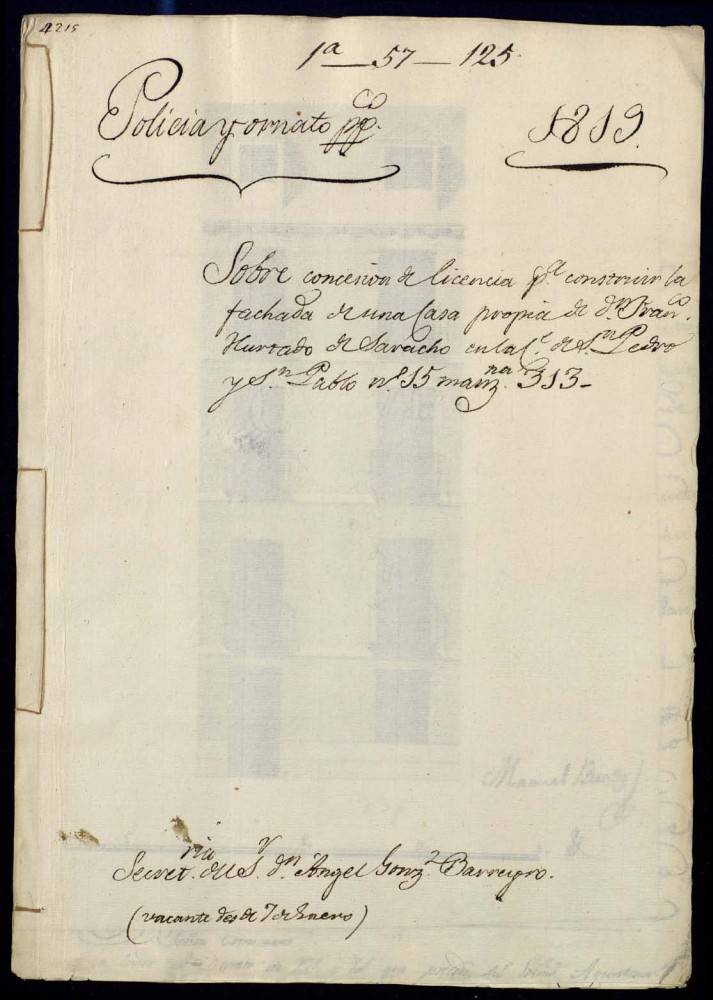 4215
1ª — 57 — 125.
Policia y ornato ppᶜᵒ.
1819.
Sobre concesion de licencia pª construir la
fachada de una Casa propia de Dⁿ Franᶜᵒ.
Hurtado de Saracho en la Cᵉ. de Sⁿ Pedro
y Sⁿ. Pablo nº. 15 manzⁿᵃ. 313 –
Secretʳⁱᵃ. del Sʳ. Dⁿ Angel Gonzᶻ Barreyro.
(vacante des de 7 de Enero)
Manuel